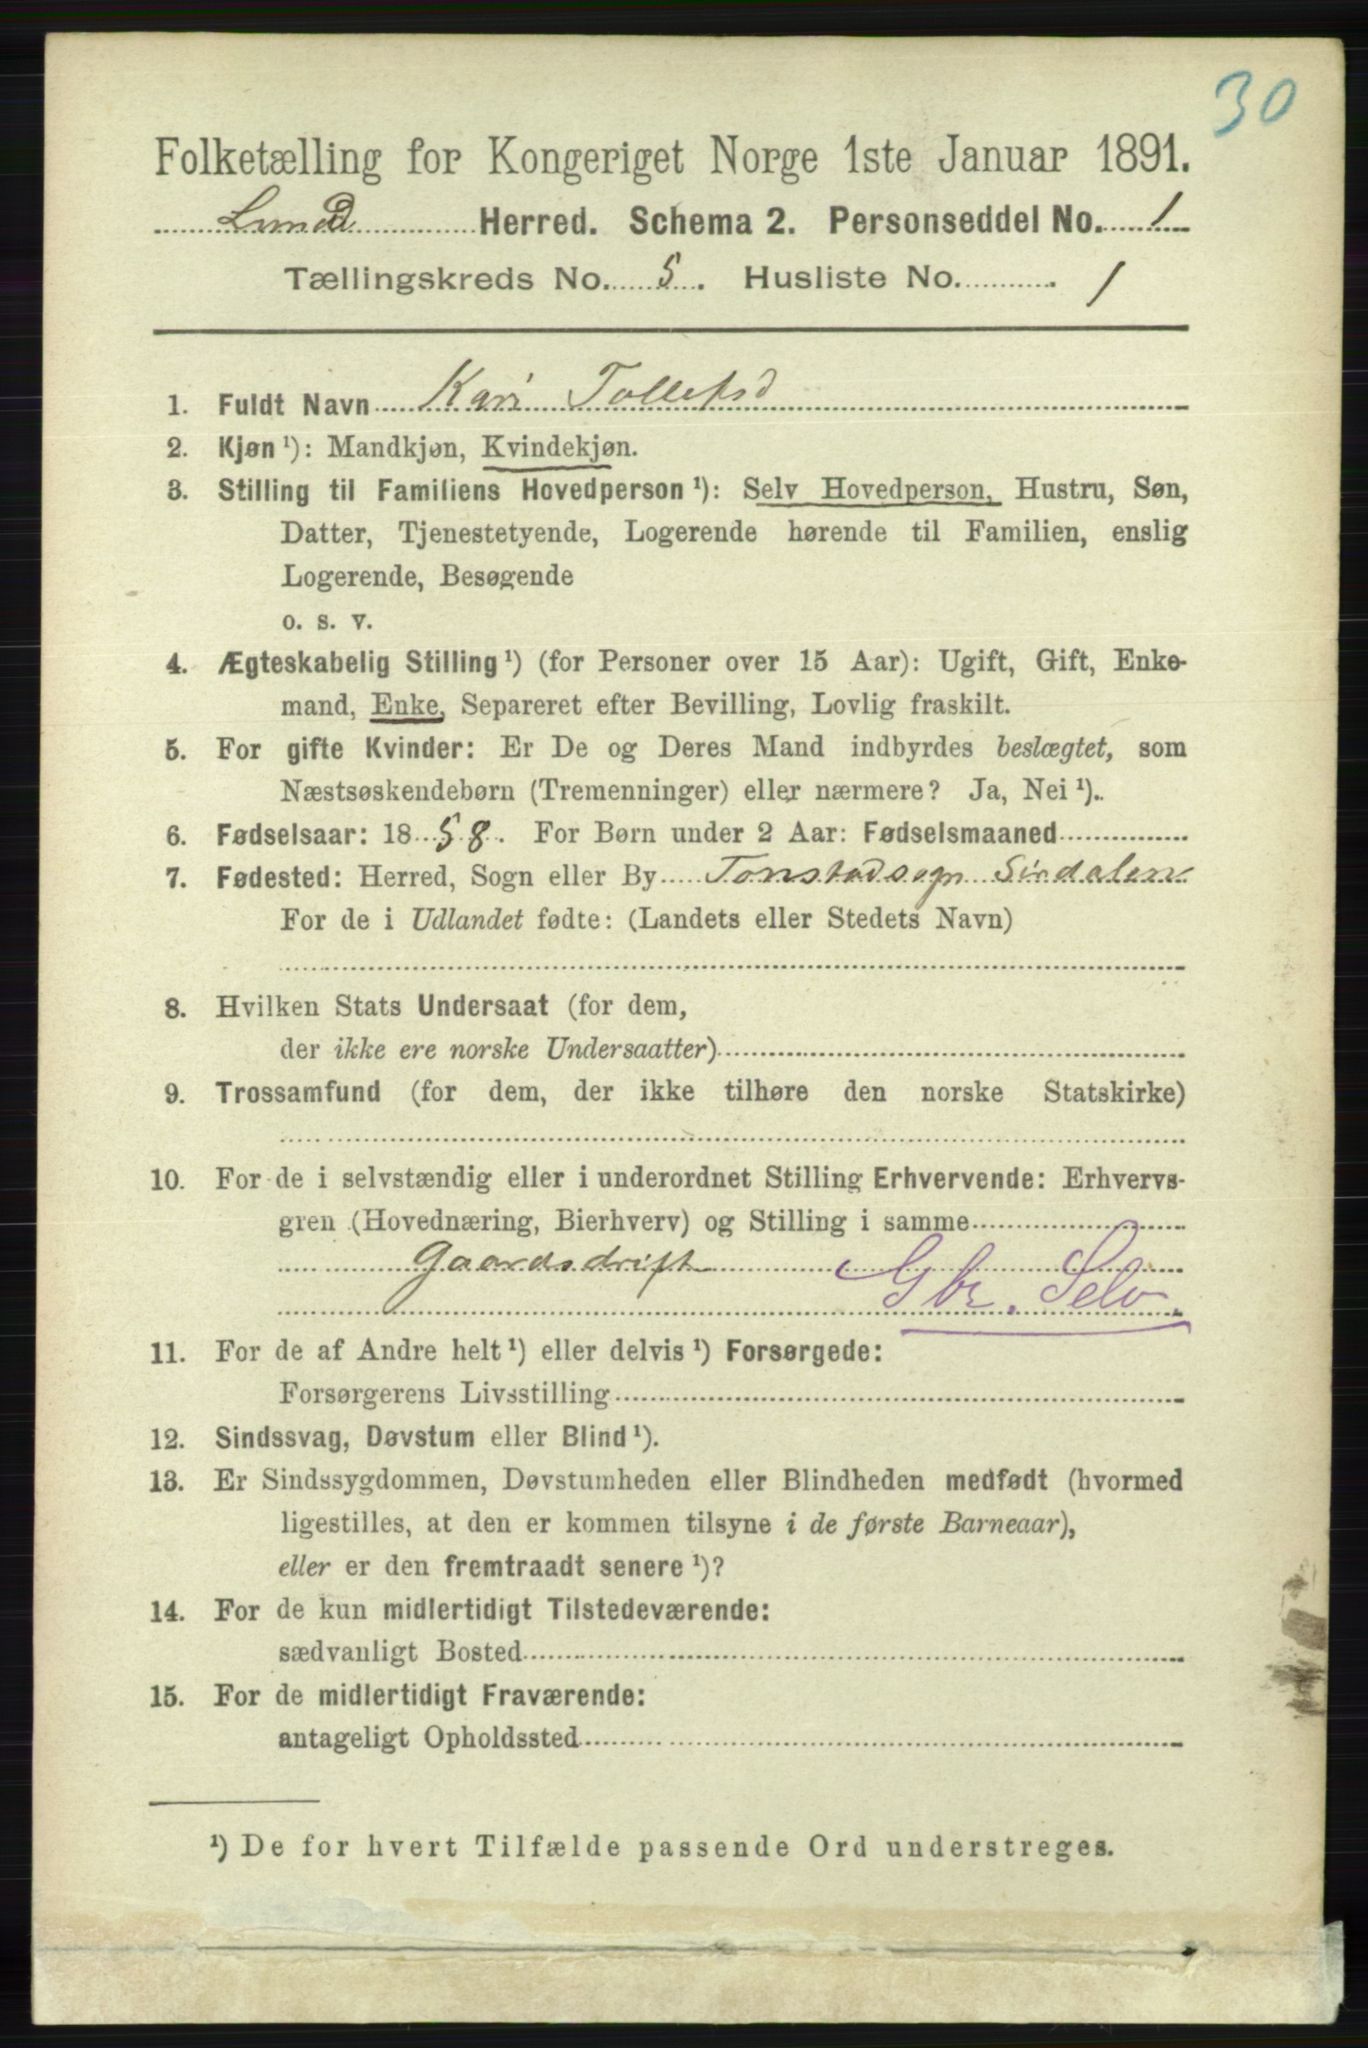 30
Folketælling for Kongeriget Norge 1ste Januar 1891.
Lund Herred. Schema 2. Personseddel No. 1
Tællingskreds No. 5. Husliste No. 1
1. Fuldt Navn Kari Tollefsd
2. Kjøn ¹): Mandkjøn, Kvindekjøn.
3. Stilling til Familiens Hovedperson ¹): Selv Hovedperson, Hustru, Søn,
Datter, Tjenestetyende, Logerende hørende til Familien, enslig
Logerende, Besøgende
o. s. v.
4. Ægteskabelig Stilling ¹) (for Personer over 15 Aar): Ugift, Gift, Enke-
mand, Enke, Separeret efter Bevilling, Lovlig fraskilt.
5. For gifte Kvinder: Er De og Deres Mand indbyrdes beslægtet, som
Næstsøskendebørn (Tremenninger) eller nærmere? Ja, Nei ¹).
6. Fødselsaar: 1858. For Børn under 2 Aar: Fødselsmaaned
7. Fødested: Herred, Sogn eller By Tonstadsogn Sirdalen
For de i Udlandet fødte: (Landets eller Stedets Navn)
8. Hvilken Stats Undersaat (for dem,
der ikke ere norske Undersaatter)
9. Trossamfund (for dem, der ikke tilhøre den norske Statskirke)
10. For de i selvstændig eller i underordnet Stilling Erhvervende: Erhvervs-
gren (Hovednæring, Bierhverv) og Stilling i samme
Gaardsdrift Gbr. Selv.
11. For de af Andre helt ¹) eller delvis ¹) Forsørgede:
Forsørgerens Livsstilling
12. Sindssvag, Døvstum eller Blind ¹).
13. Er Sindssygdommen, Døvstumheden eller Blindheden medfødt (hvormed
ligestilles, at den er kommen tilsyne i de første Barneaar),
eller er den fremtraadt senere ¹)?
14. For de kun midlertidigt Tilstedeværende:
sædvanligt Bosted
15. For de midlertidigt Fraværende:
antageligt Opholdssted
¹) De for hvert Tilfælde passende Ord understreges.